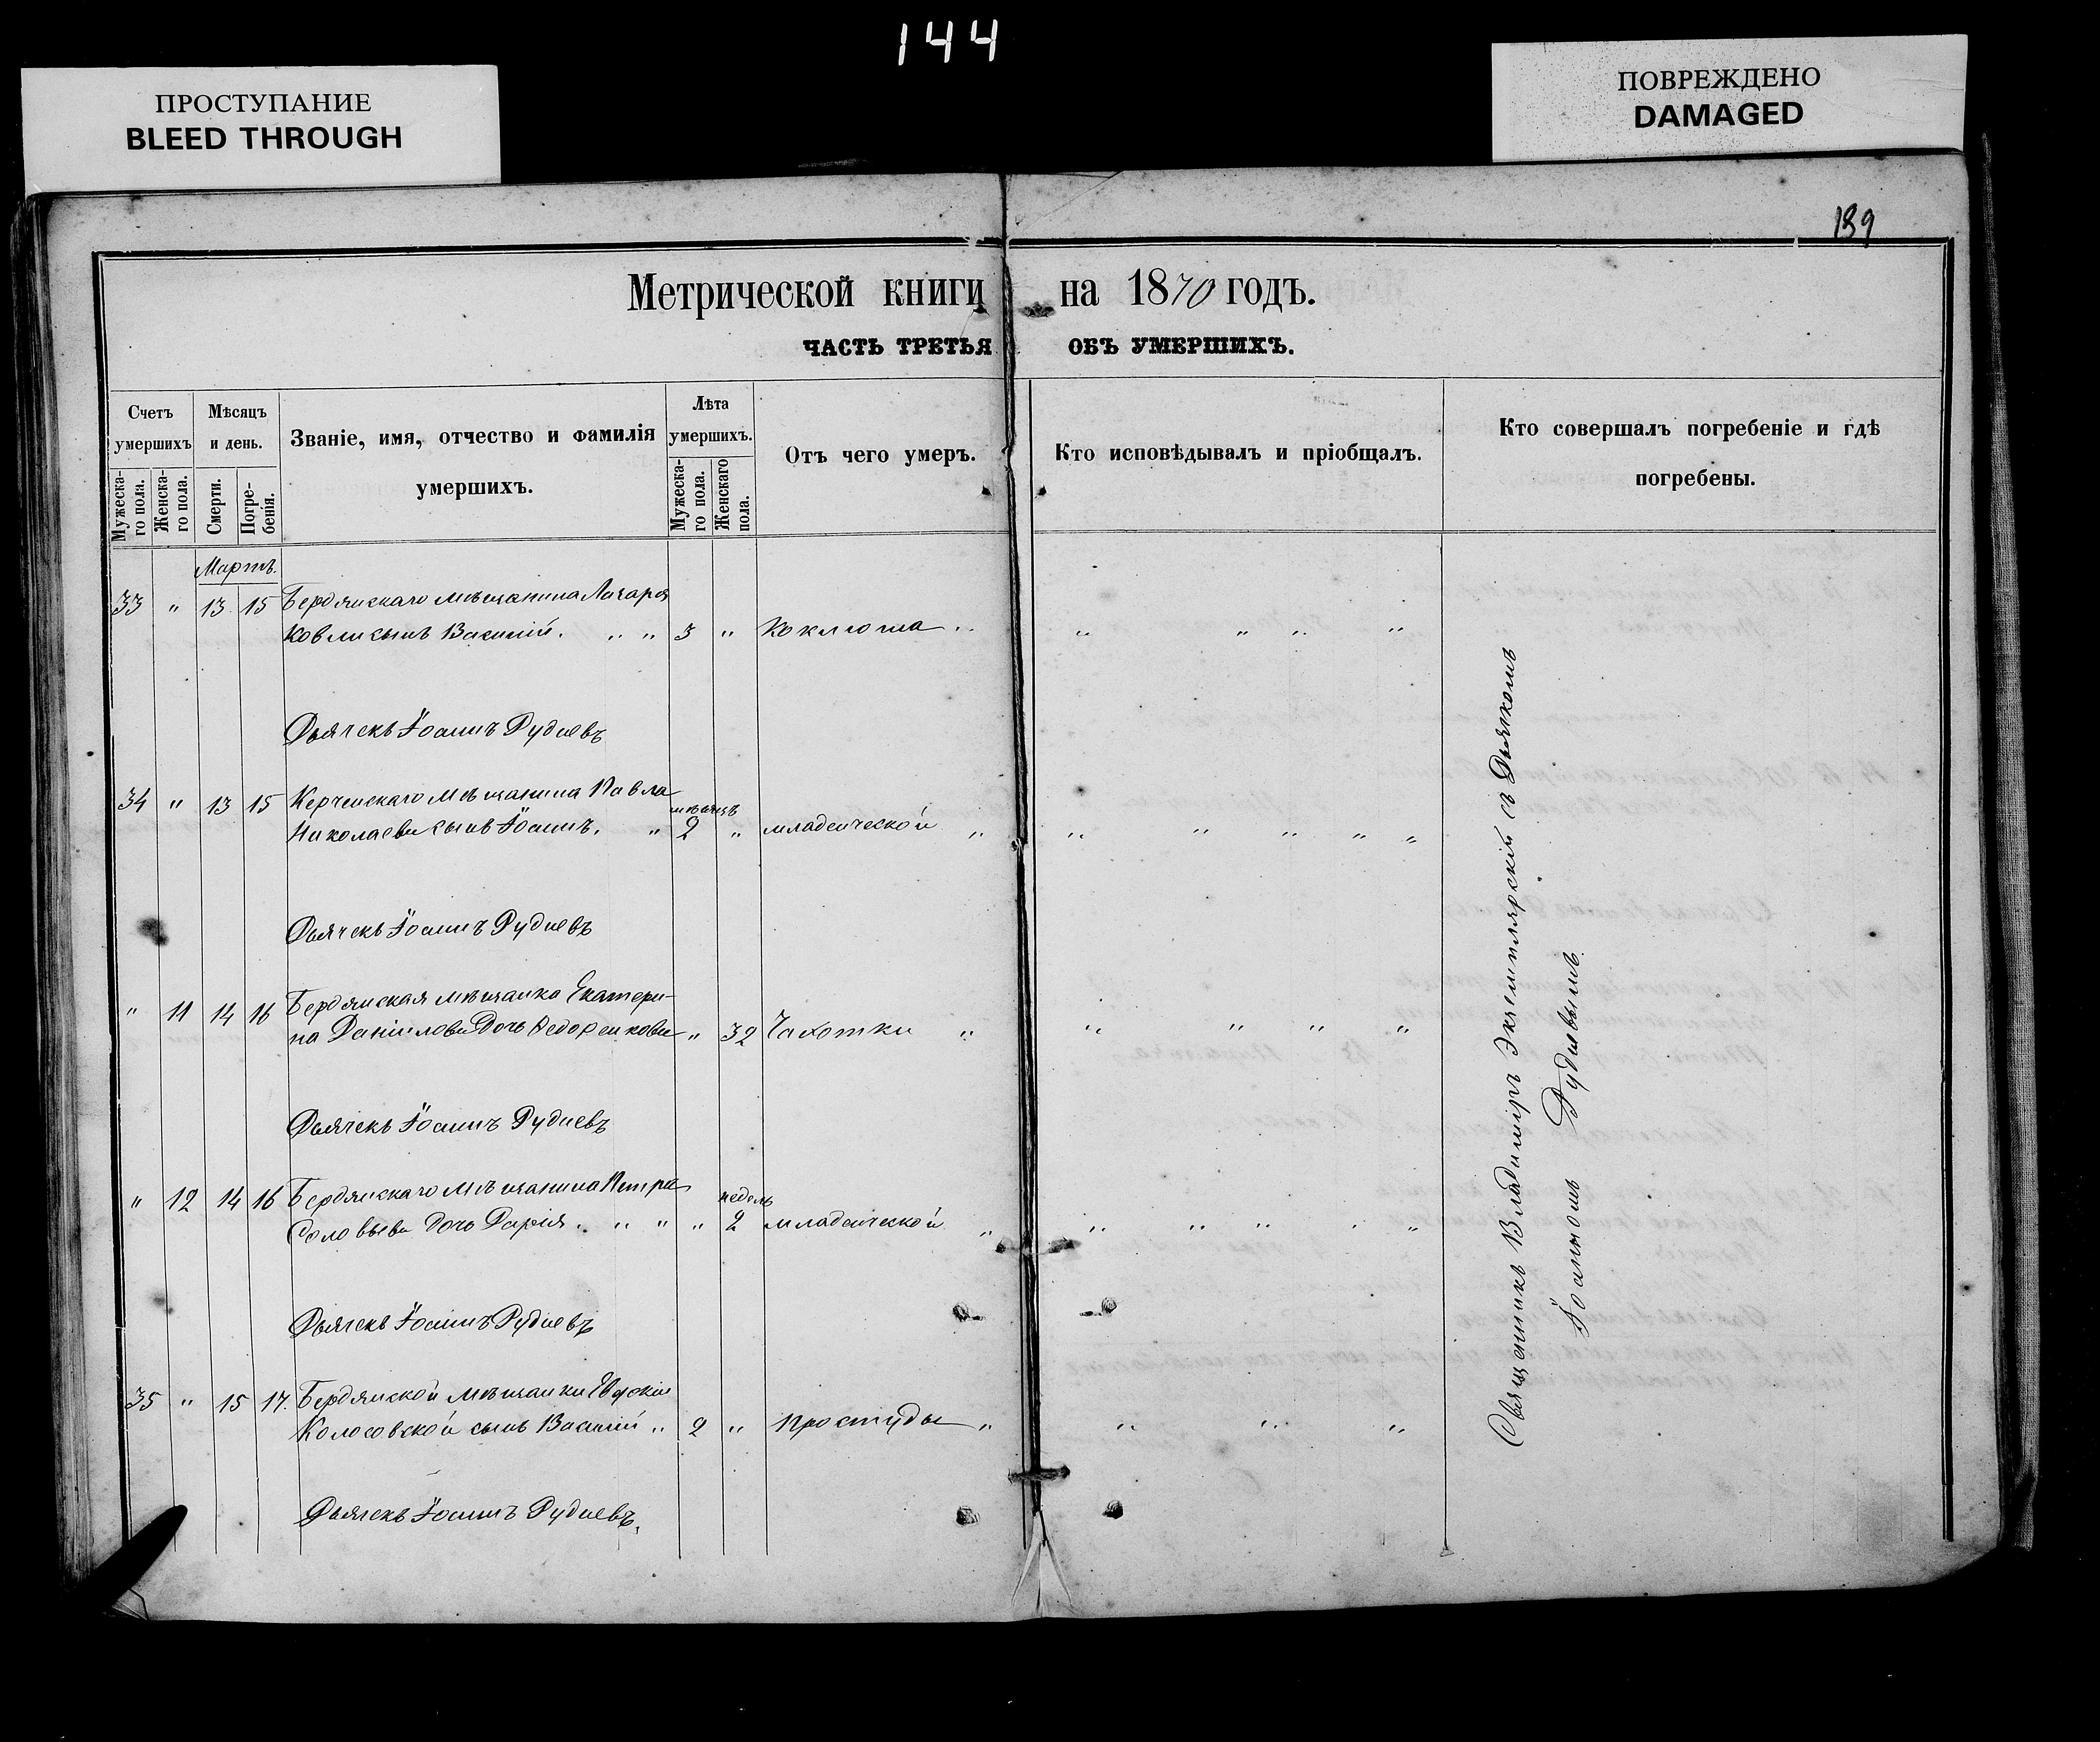 144
ПРОСТУПАНИЕ
BLEED THROUGH
ПОВРЕЖДЕНО
DAMAGED
189
Метрической книги на 1870 годъ.
ЧАСТЬ ТРЕТЬЯ ОБЪ УМЕРШИХЪ.
Счетъ умершихъ
Мужеска-го пола.
Женска-го пола.
Мѣсяцъ и день.
Смерти.
Погре-бенія.
Званіе, имя, отчество и фамилія умершихъ.
Лѣта умершихъ.
Мужеска-го пола.
Женскаго пола.
Отъ чего умеръ.
Кто исповѣдывалъ и пріобщалъ.
Кто совершалъ погребеніе и гдѣ погребены.
Мартъ.
33 " 13 15 Бердянскаго мѣщанина Захарія
Ковли сынъ Василій. " " 3 " Коклюша " " " " "
Дьячекъ Іоаннъ Рудневъ
34 " 13 15 Керченскаго мѣщанина Павла мѣсяцъ
Николаева сынъ Іоаннъ. " 2 " младенческой " " " " " "
Дьячекъ Іоаннъ Рудневъ
" 11 14 16 Бердянская мѣщанка Екатери-
на Даніилова дочь Федоренкова " 32 Чахотки " " " " "
Дьячекъ Іоаннъ Рудневъ
" 12 14 16 Бердянскаго мѣщанина Петра недель
Соловьева дочь Дарія. " " " 2 младенческой " " " " " "
Дьячекъ Іоаннъ Рудневъ
35 " 15 17. Бердянской мѣщанки Евдокіи
Колосовской сынъ Василій " 2 " простуды " " " "
Дьячекъ Іоаннъ Рудневъ.
Священникъ Владиміръ Экземплярскій съ Дьячкомъ
Іоанномъ Рудневымъ